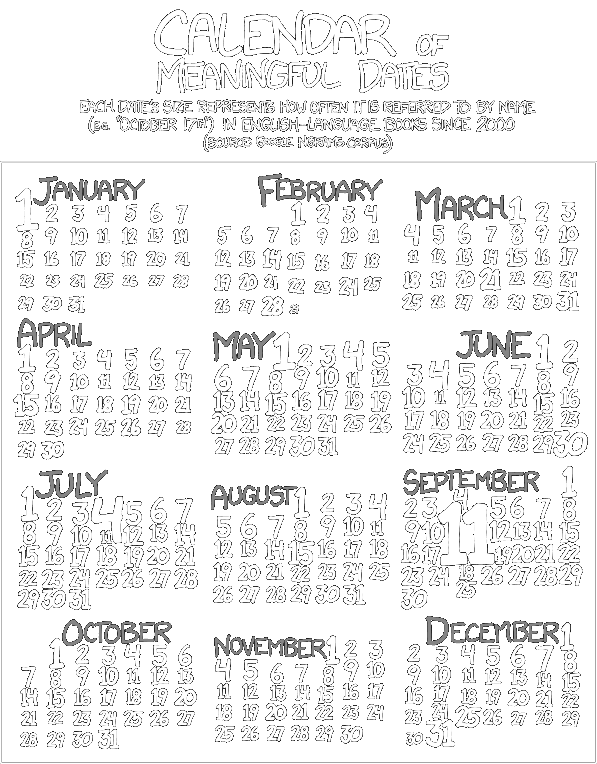 CALENDAR OF
MEANINGFUL DATES
EACH DATE'S SIZE REPRESENTS HOW OFTEN IT IS REFERRED TO BY NAME
(E.G. "OCTOBER 17TH") IN ENGLISH-LANGUAGE BOOKS SINCE 2000
(SOURCE: GOOGLE NGRAMS CORPUS)
JANUARY
1 2 3 4 5 6 7
8 9 10 11 12 13 14
15 16 17 18 19 20 21
22 23 24 25 26 27 28
29 30 31
FEBRUARY
1 2 3 4
5 6 7 8 9 10 11
12 13 14 15 16 17 18
19 20 21 22 23 24 25
26 27 28 29
MARCH 1 2 3
4 5 6 7 8 9 10
11 12 13 14 15 16 17
18 19 20 21 22 23 24
25 26 27 28 29 30 31
APRIL
1 2 3 4 5 6 7
8 9 10 11 12 13 14
15 16 17 18 19 20 21
22 23 24 25 26 27 28
29 30
MAY 1 2 3 4 5
6 7 8 9 10 11 12
13 14 15 16 17 18 19
20 21 22 23 24 25 26
27 28 29 30 31
JUNE 1 2
3 4 5 6 7 8 9
10 11 12 13 14 15 16
17 18 19 20 21 22 23
24 25 26 27 28 29 30
JULY
1 2 3 4 5 6 7
8 9 10 11 12 13 14
15 16 17 18 19 20 21
22 23 24 25 26 27 28
29 30 31
AUGUST 1 2 3 4
5 6 7 8 9 10 11
12 13 14 15 16 17 18
19 20 21 22 23 24 25
26 27 28 29 30 31
SEPTEMBER 1
2 3 4 5 6 7 8
9 10 11 12 13 14 15
16 17 19 20 21 22
23 24 18 26 27 28 29
25
30
OCTOBER
1 2 3 4 5 6
7 8 9 10 11 12 13
14 15 16 17 18 19 20
21 22 23 24 25 26 27
28 29 30 31
NOVEMBER 1 2 3
4 5 6 7 8 9 10
11 12 13 14 15 16 17
18 19 20 21 22 23 24
25 26 27 28 29 30
DECEMBER 1
2 3 4 5 6 7 8
9 10 11 12 13 14 15
16 17 18 19 20 21 22
23 24 25 26 27 28 29
30 31